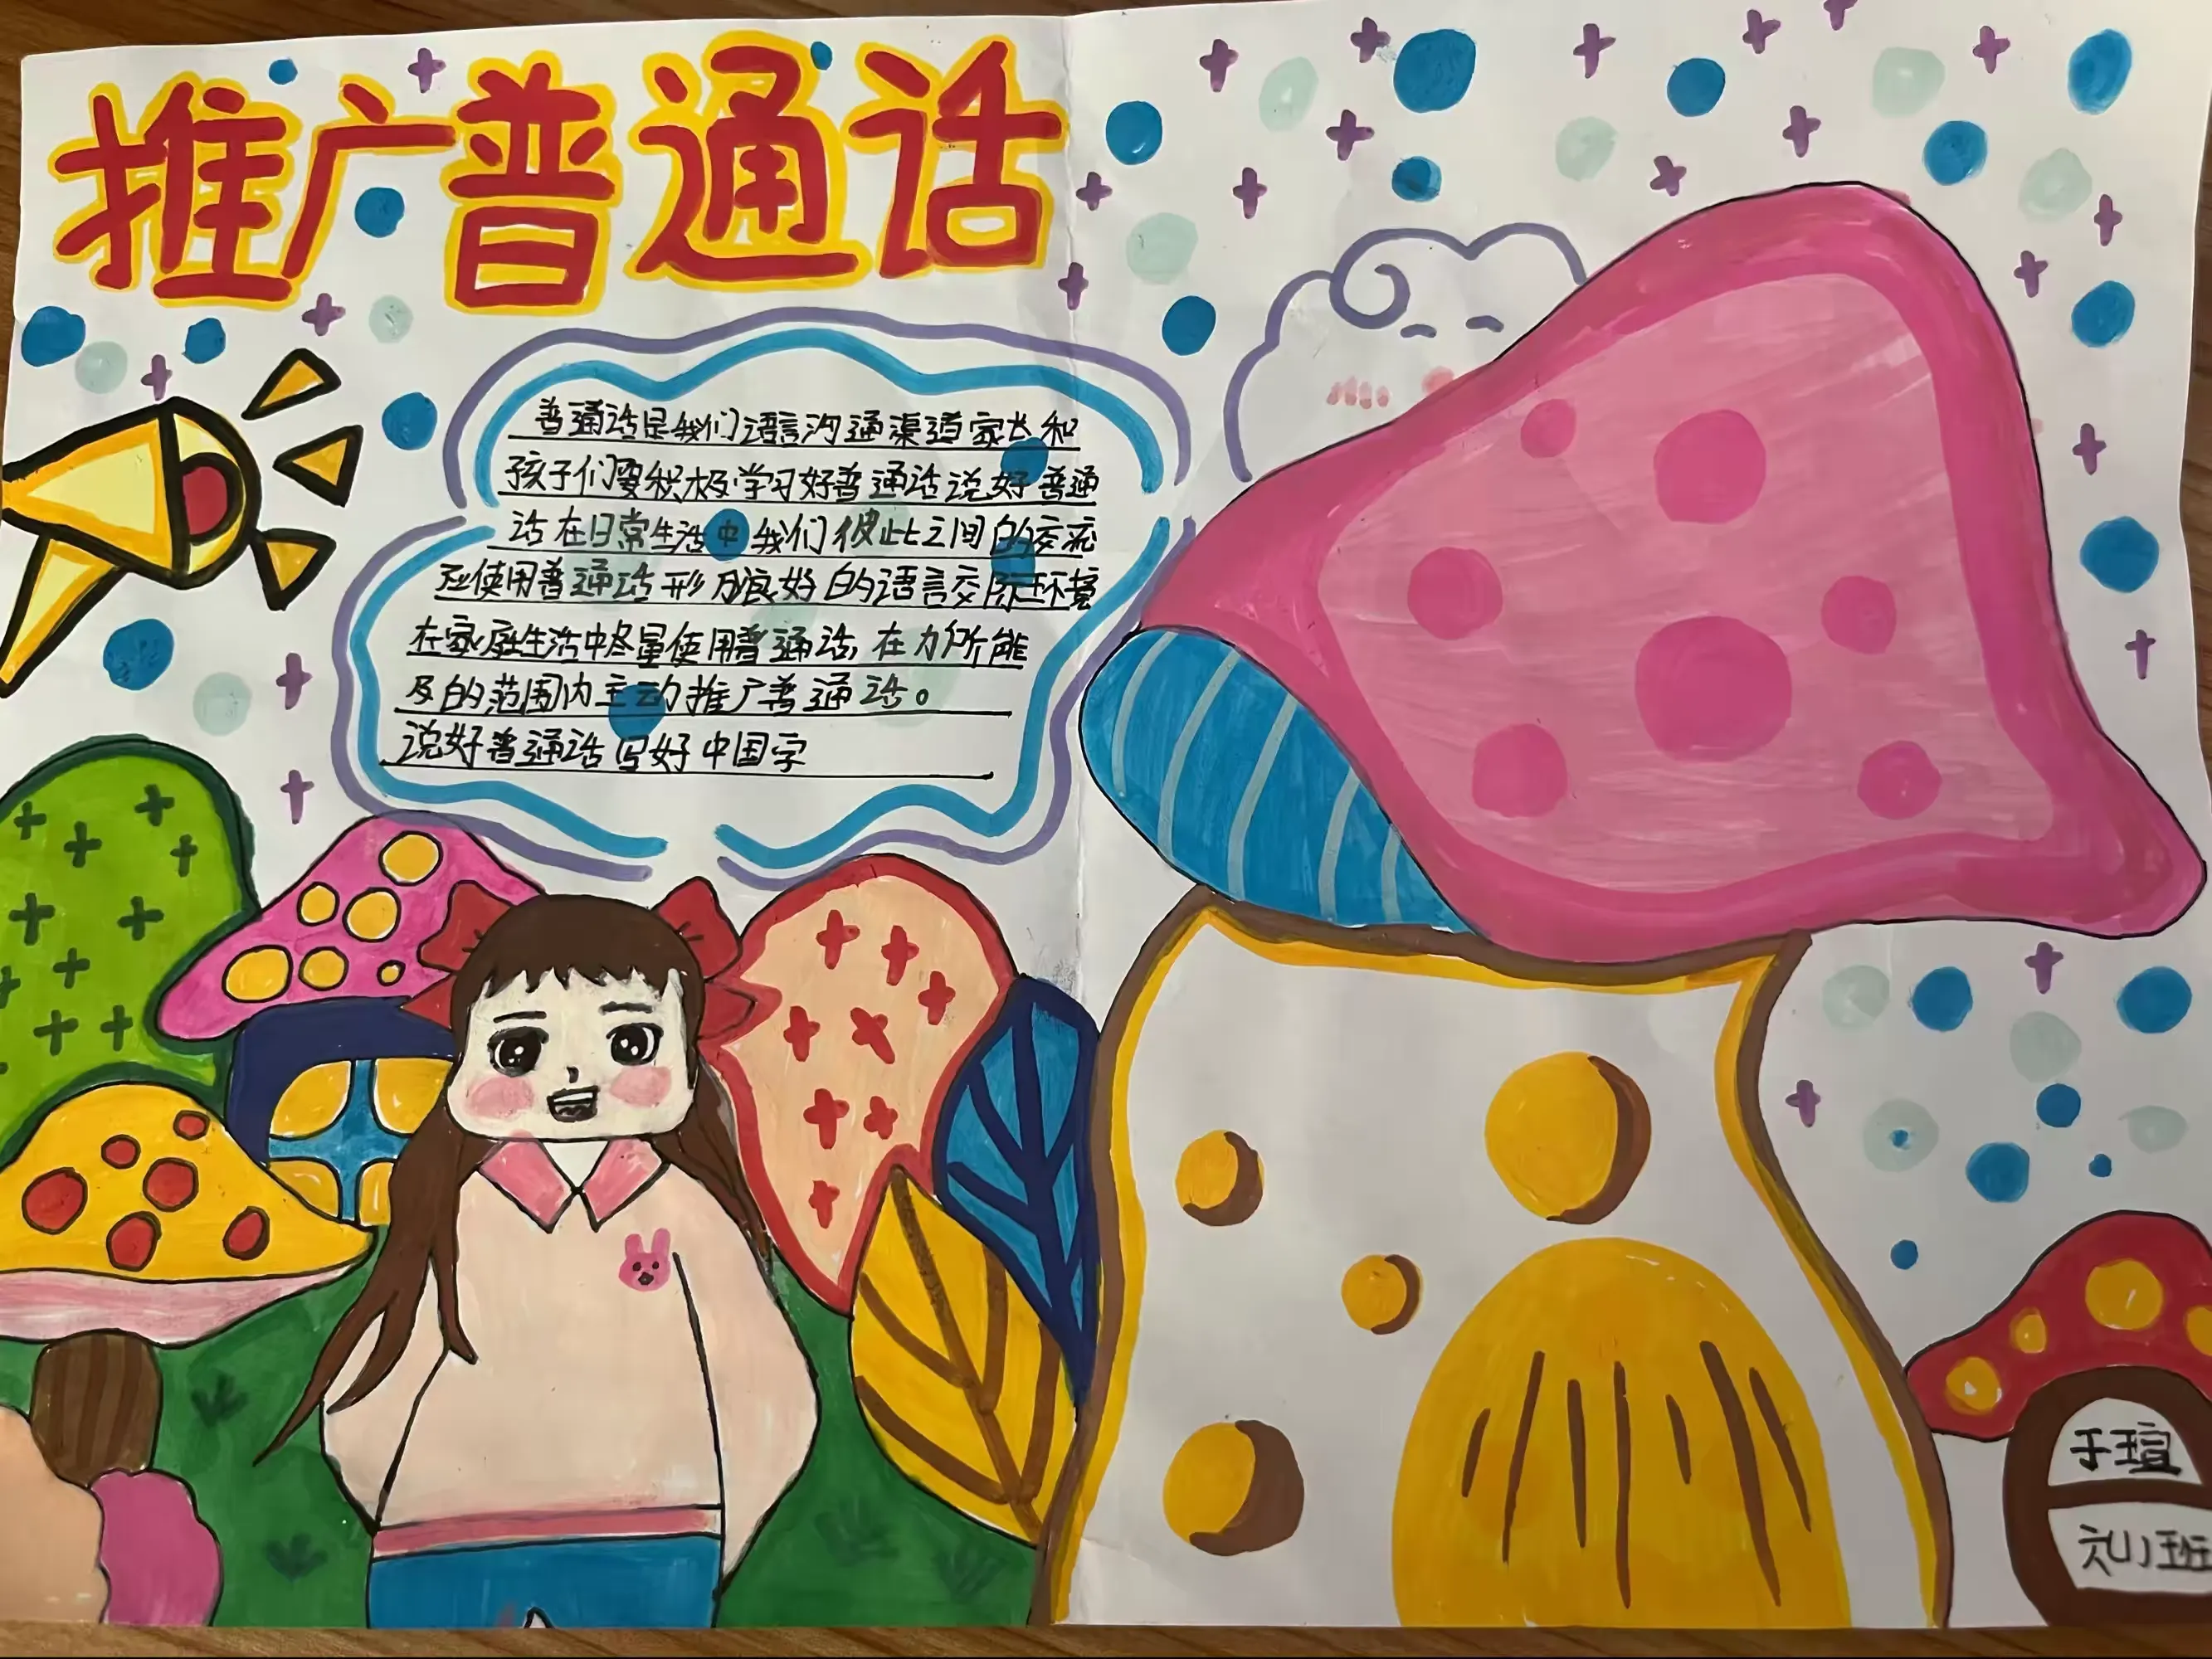 推广普通话
普通话是我们语言沟通渠道家长和
孩子们要积极学习好普通话说好普通
话在日常生活中我们彼此之间的交流
应使用普通话形成良好的语言交际环境
在家庭生活中尽量使用普通话,在力所能
及的范围内主动推广普通话。
说好普通话写好中国字
于瑄
六(1)班